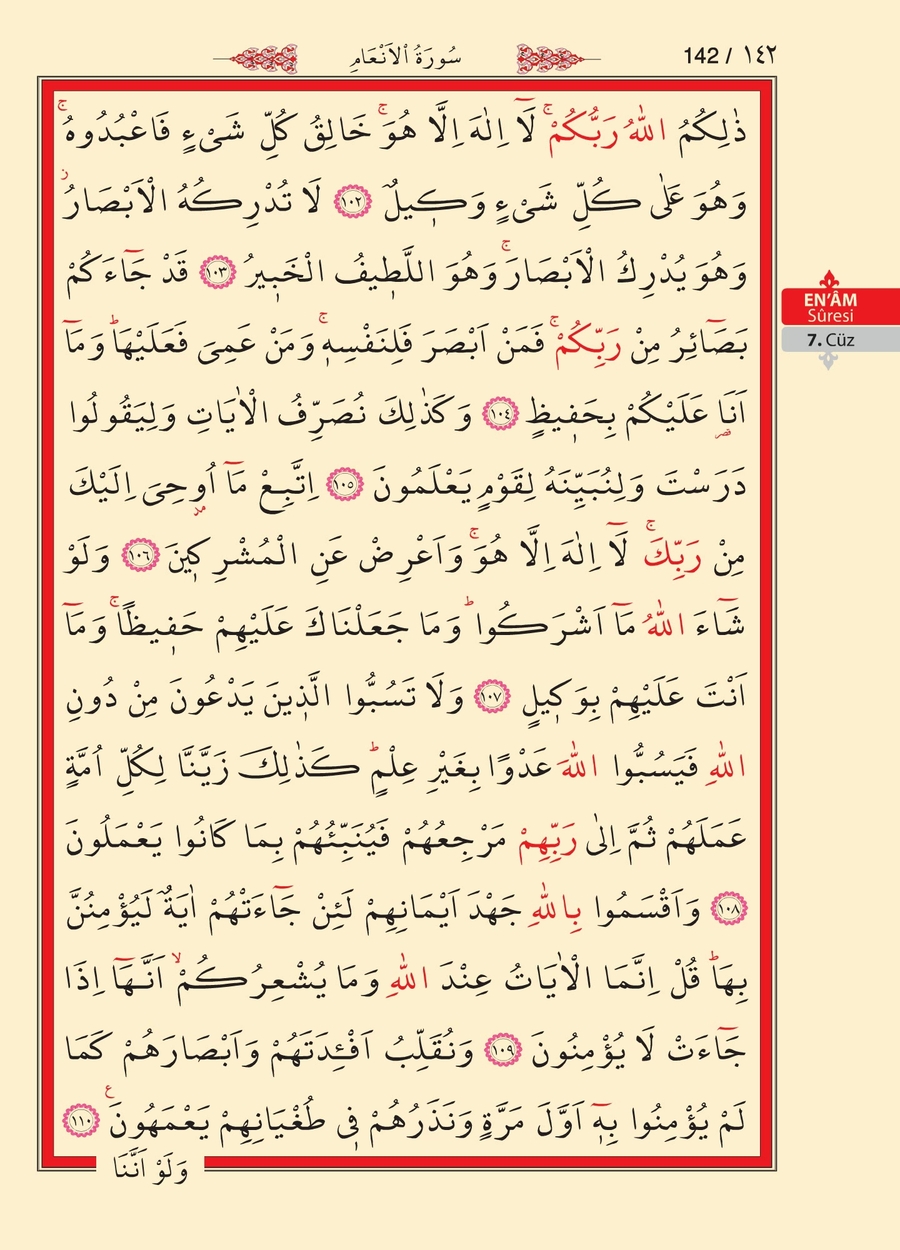 142 / ١٤٢ سُورَةُ الْاَنْعَامِ
ذٰلِكُمُ اللّٰهُ رَبُّكُمْۚ لَٓا اِلٰهَ اِلَّا هُوَۚ خَالِقُ كُلِّ شَيْءٍ فَاعْبُدُوهُۚ
وَهُوَ عَلٰى كُلِّ شَيْءٍ وَك۪يلٌ ﴿١٠٢﴾ لَا تُدْرِكُهُ الْاَبْصَارُۘ
وَهُوَ يُدْرِكُ الْاَبْصَارَۚ وَهُوَ اللَّط۪يفُ الْخَب۪يرُ ﴿١٠٣﴾ قَدْ جَٓاءَكُمْ
بَصَٓائِرُ مِنْ رَبِّكُمْۚ فَمَنْ اَبْصَرَ فَلِنَفْسِه۪ۚ وَمَنْ عَمِيَ فَعَلَيْهَاۜ وَمَٓا
اَنَا۬ عَلَيْكُمْ بِحَف۪يظٍ ﴿١٠٤﴾ وَكَذٰلِكَ نُصَرِّفُ الْاٰيَاتِ وَلِيَقُولُوا
دَرَسْتَ وَلِنُبَيِّنَهُ لِقَوْمٍ يَعْلَمُونَ ﴿١٠٥﴾ اِتَّبِعْ مَٓا اُو۫حِيَ اِلَيْكَ
مِنْ رَبِّكَۚ لَٓا اِلٰهَ اِلَّا هُوَۚ وَاَعْرِضْ عَنِ الْمُشْرِك۪ينَ ﴿١٠٦﴾ وَلَوْ
شَٓاءَ اللّٰهُ مَٓا اَشْرَكُواۜ وَمَا جَعَلْنَاكَ عَلَيْهِمْ حَف۪يظًاۚ وَمَٓا
اَنْتَ عَلَيْهِمْ بِوَك۪يلٍ ﴿١٠٧﴾ وَلَا تَسُبُّوا الَّذ۪ينَ يَدْعُونَ مِنْ دُونِ
اللّٰهِ فَيَسُبُّوا اللّٰهَ عَدْوًا بِغَيْرِ عِلْمٍۜ كَذٰلِكَ زَيَّنَّا لِكُلِّ اُمَّةٍ
عَمَلَهُمْ ثُمَّ اِلٰى رَبِّهِمْ مَرْجِعُهُمْ فَيُنَبِّئُهُمْ بِمَا كَانُوا يَعْمَلُونَ
﴿١٠٨﴾ وَاَقْسَمُوا بِاللّٰهِ جَهْدَ اَيْمَانِهِمْ لَئِنْ جَٓاءَتْهُمْ اٰيَةٌ لَيُؤْمِنُنَّ
بِهَاۜ قُلْ اِنَّمَا الْاٰيَاتُ عِنْدَ اللّٰهِ وَمَا يُشْعِرُكُمْۙ اَنَّهَٓا اِذَا
جَٓاءَتْ لَا يُؤْمِنُونَ ﴿١٠٩﴾ وَنُقَلِّبُ اَفْـِٔدَتَهُمْ وَاَبْصَارَهُمْ كَمَا
لَمْ يُؤْمِنُوا بِه۪ٓ اَوَّلَ مَرَّةٍ وَنَذَرُهُمْ ف۪ي طُغْيَانِهِمْ يَعْمَهُونَ۟ ﴿١١٠﴾
وَلَوْ اَنَّنَا
EN’ÂM
Sûresi
7. Cüz